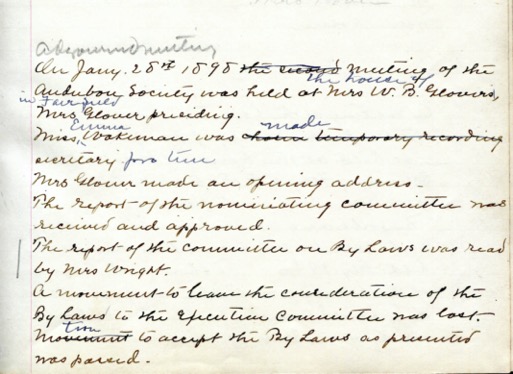 Adjourned meeting
On Jany. 28th 1898 the second meeting of the
the house of
Audubon Society was held at Mrs W. B. Glovers,
in Fairfield
Mrs Glover presiding.
Emma made
Miss Wakeman was chosen temporary recording
secretary pro tem
Mrs Glover made an opening address.
The report of the nominating committee was
received and approved.
The report of the committee on By Laws was read
by Mrs Wright.
A movement to leave the consideration of the
By Laws to the Executive Committee was lost.
tion
Movement to accept the By Laws as presented
was passed.